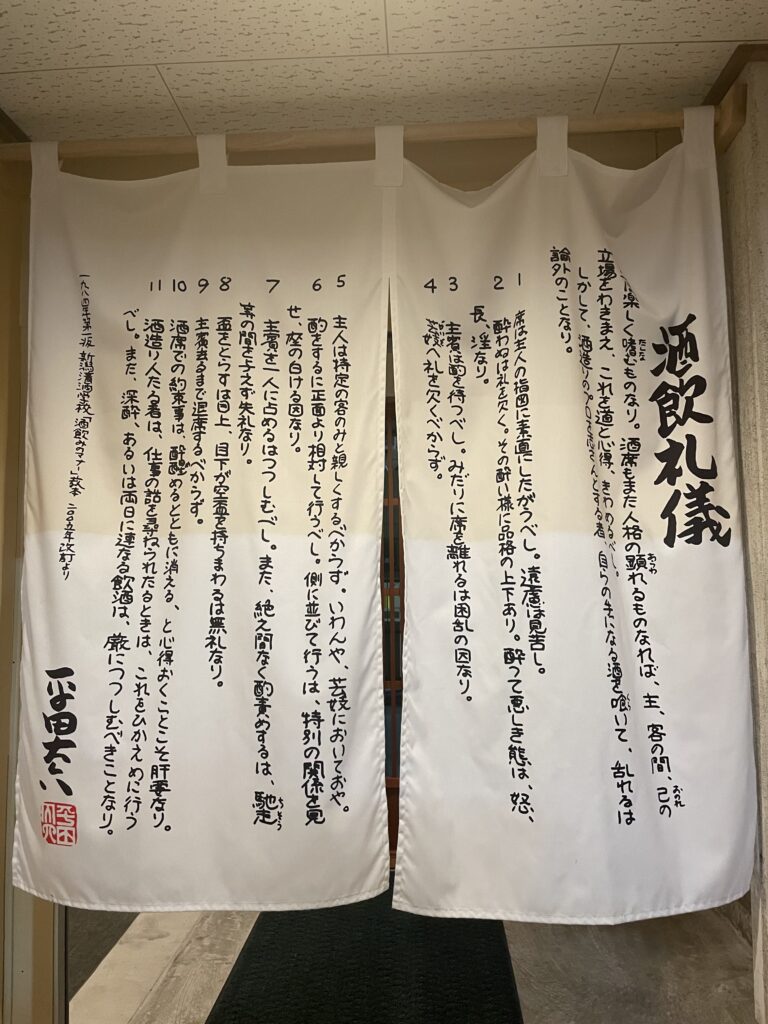 酒飲礼儀
は楽しく嗜むものなり。酒席もまた人格の顕れるものなれば、主、客の間、己の
立場をわきまえ、これを道と心得、きわめるべし。
しかして、酒造りのプロを志さんとする者、自らの手になる酒を喰いて、乱れるは
論外のことなり。
1 席は主人の指図に素直にしたがうべし。遠慮は見苦し。
2 酔わぬは礼を欠く。その酔い様に品格の上下あり。酔って悪しき態は、怒、
長、淫なり。
3 主賓は酌を待つべし。みだりに席を離れるは困乱の因なり。
4 芸妓へ礼を欠くべからず。
5 主人は特定の客のみと親しくするべからず。いわんや、芸妓においておや。
6 酌をするに正面より相対して行うべし。側に並びて行うは、特別の関係を見
せ、座の白ける因なり。
7 主賓を一人に占めるはつつしむべし。また、絶え間なく酌責めするは、馳走
の間を与えず失礼なり。
8 盃をとらすは目上、目下が空盃を持ちまわるは無礼なり。
9 主賓去るまで退席するべからず。
10 酒席での約束事は、酔醒めるとともに消える、と心得おくことこそ肝要なり。
11 酒造り人たる者は、仕事の話を尋ねられたるときは、これをひかえめに行う
べし。また、深酔、あるいは両日に連なる飲酒は、厳につつしむべきことなり。
一九八四年第一版 新潟清酒学校「酒飲みのマナー」教本 二〇〇五年改訂より
平田大六